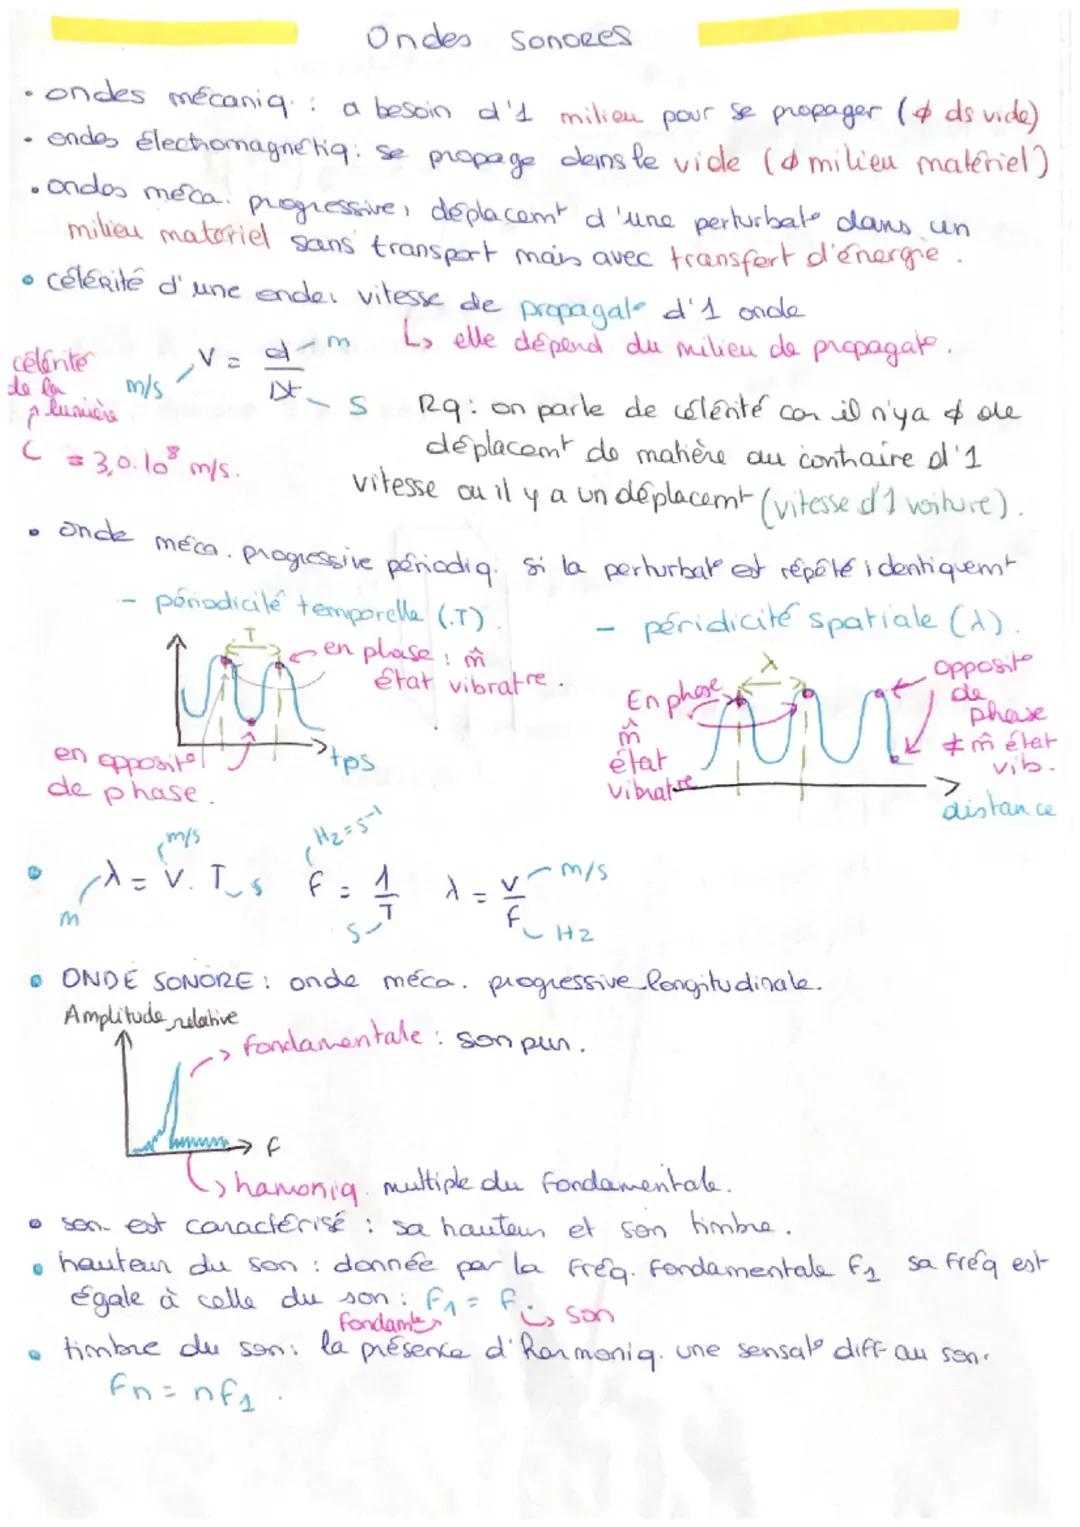 Ondes Sonores
• ondes mécaniq. : a besoin d'1 milieu pour se propager (∅ ds vide)
• ondes électromagnétiq : se propage dans le vide (∅ milieu matériel)
• ondes méca. progressive, déplacemt d'une perturbat° dans un
milieu matériel sans transport mais avec transfert d'énergie.
• célérité d'une onde : vitesse de propagat° d'1 onde
↳ elle dépend du milieu de propagat°.
célérité
de la
lumière
C = 3,0.10⁸ m/s.
m/s V = d/Δt m
s
Rq : on parle de célérité car il n'y a ∅ de
déplacemt de matière au contraire d'1
vitesse ou il y a un déplacemt (vitesse d'1 voiture).
• onde méca. progressive périodiq. si la perturbat° est répété identiquemt
- périodicité temporelle (.T).
T
en phase : m̂
état vibratre.
en opposit°
de phase.
tps
- péridicité spatiale (λ).
λ
En phase
m̂
état
vibratre
opposit°
de
phase
≠ m̂ état
vib.
distance
• λ = V. T f = 1/T λ = v/f
m m/s s Hz = s⁻¹ s m/s Hz
• ONDE SONORE : onde méca. progressive longitudinale.
Amplitude relative
→ fondamentale : son pur.
f
↳ hamoniq. multiple du fondamentale.
• son est caractérisé : sa hauteur et son timbre.
• hauteur du son : donnée par la fréq. fondamentale f₁ sa fréq est
égale à celle du son : f₁ = f.
fondamt ↳ son
• timbre du son : la présence d'harmoniq. une sensat° diff au son.
fn = nf₁.